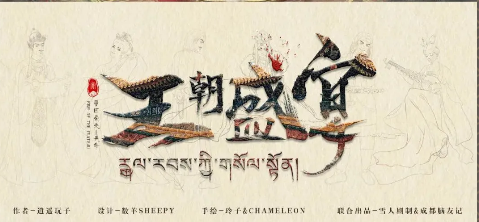 王朝盛宴
རྒྱལ་རབས་ཀྱི་གསོལ་སྟོན།
作者-逍遥玩子 设计-数羊SHEEPY 手绘-玲子&CHAMELEON 联合出品-雪人剧制&成都脑友记